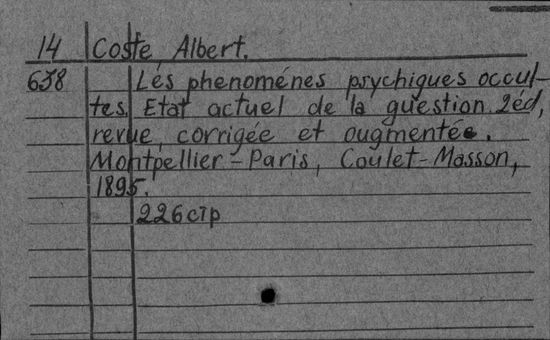 14 Coste, Albert.
638 Les phenoménes psychiques occul-
tes. Etat actuel de la question. 2éd,
revue, corrigée et augmentée.
Montpellier-Paris, Coulet-Masson,
1895.
226 стр